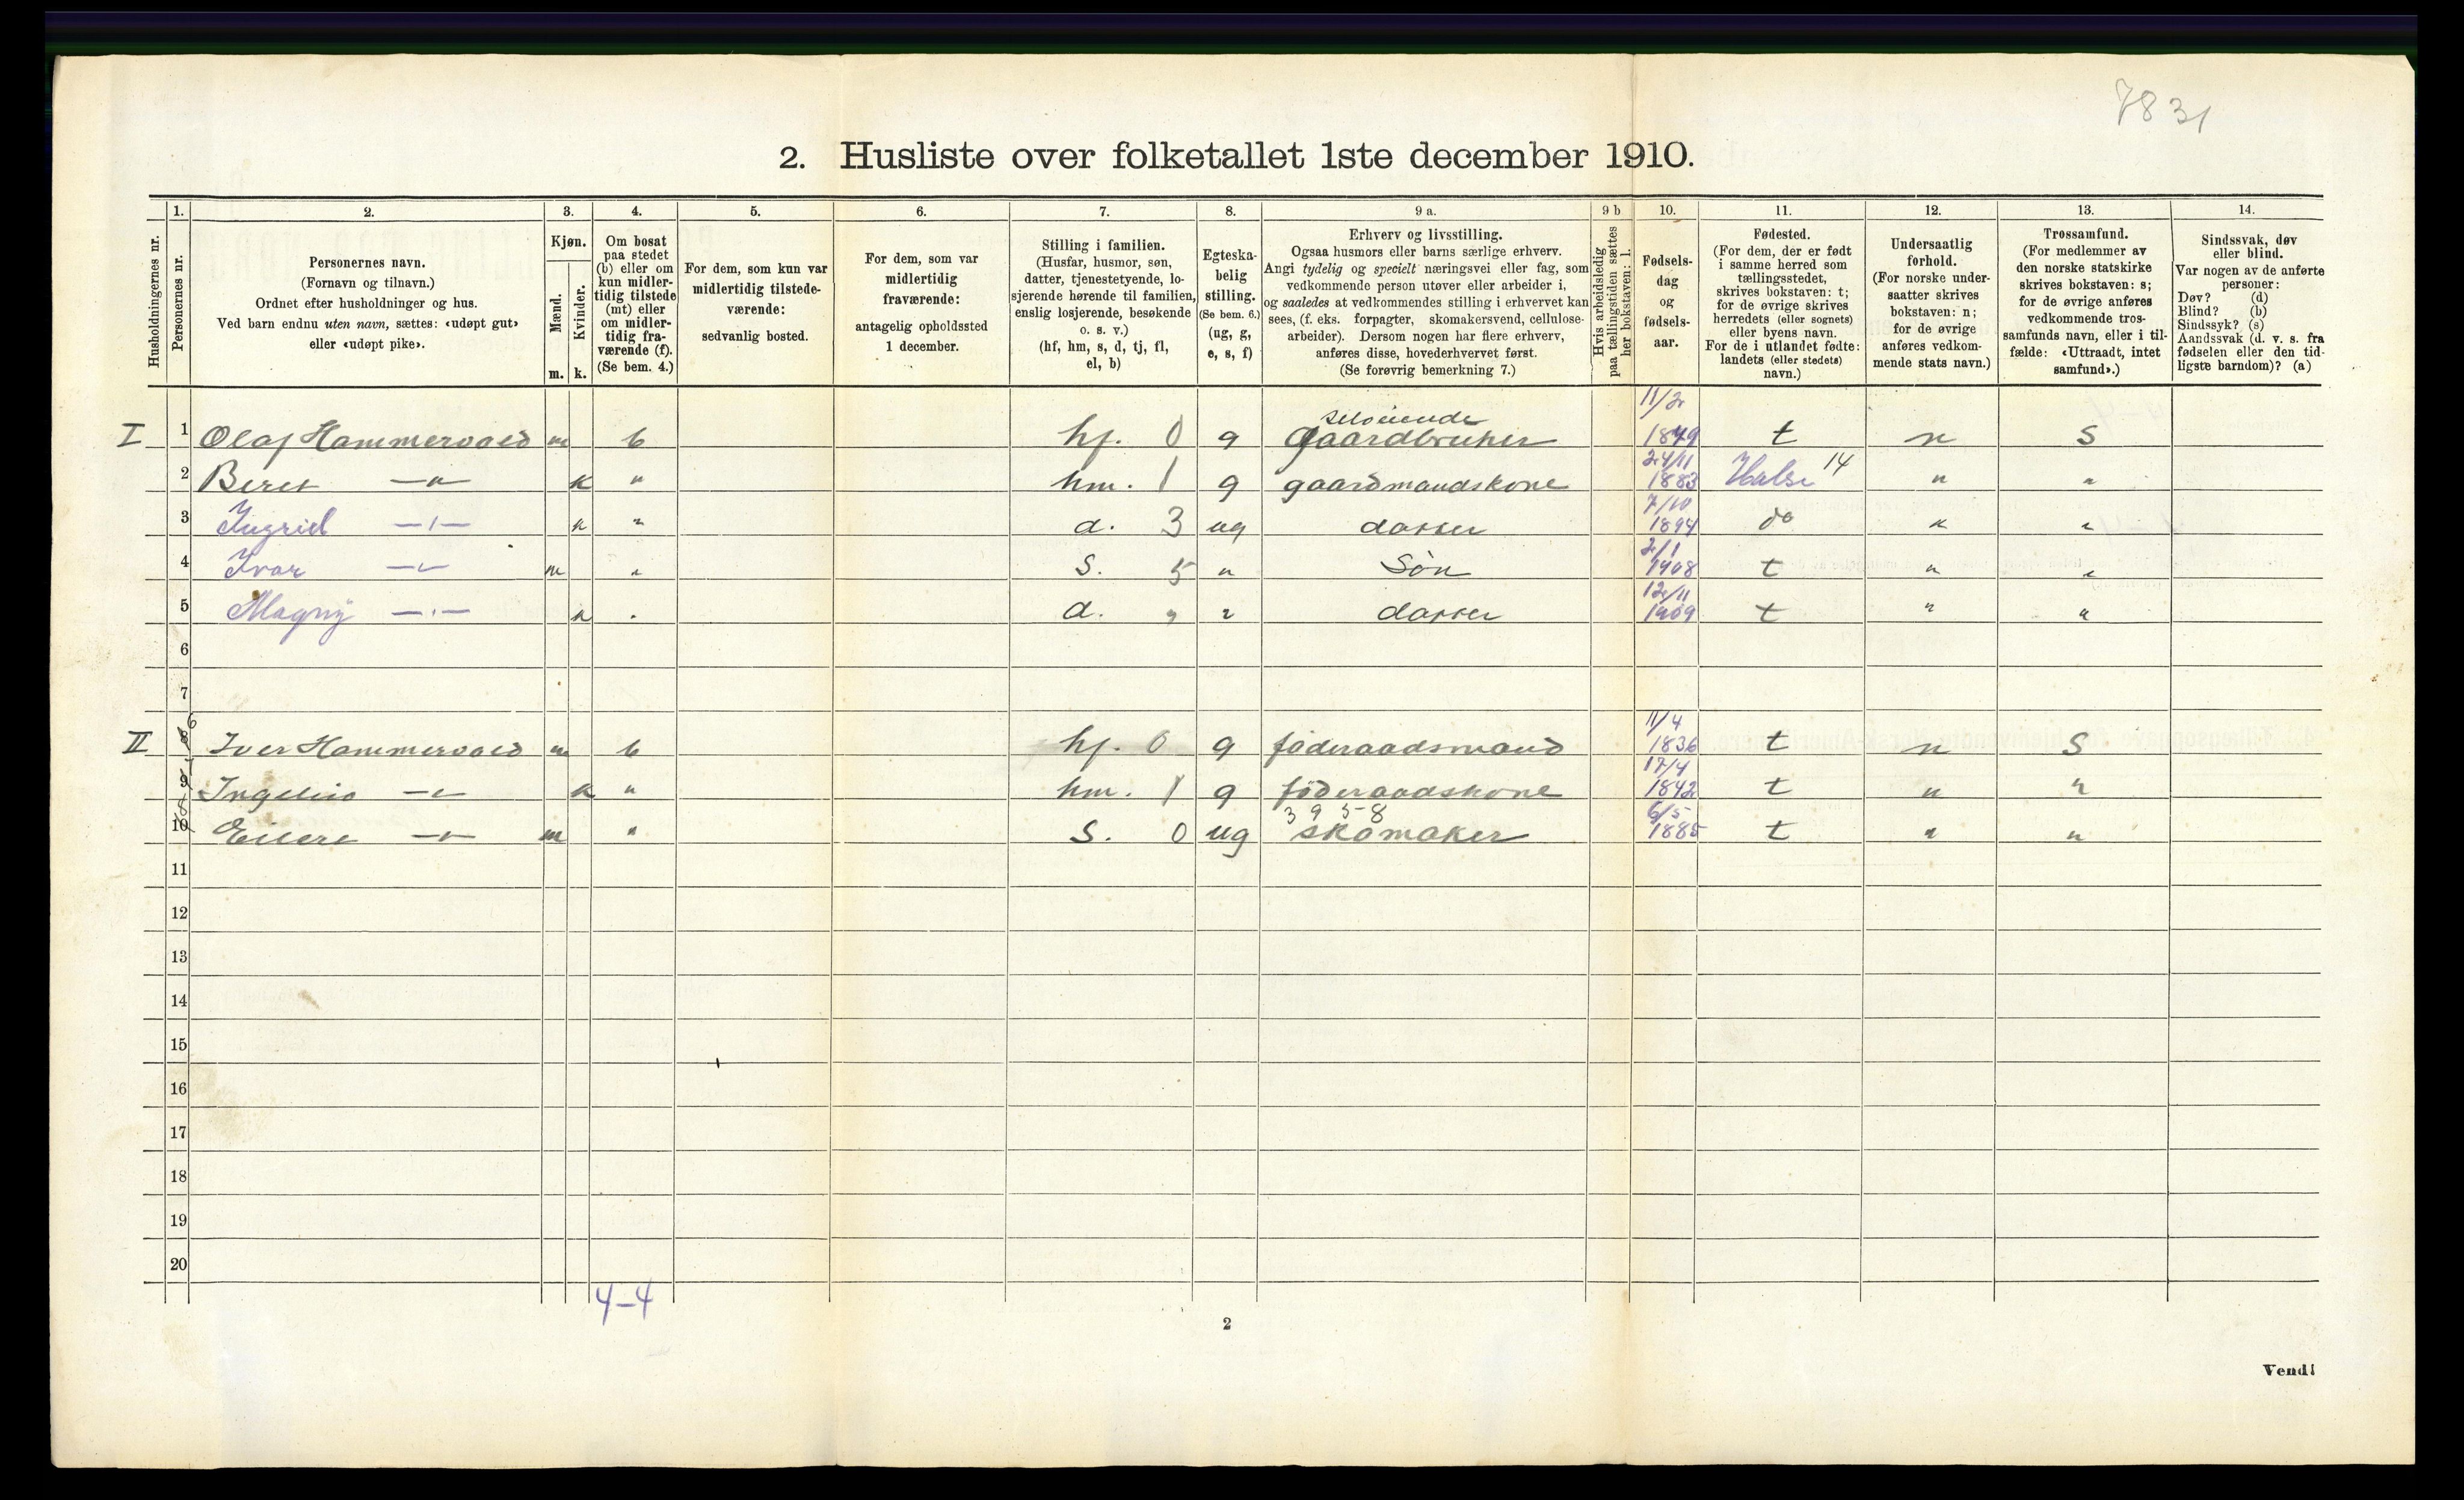 7831
2. Husliste over folketallet 1ste december 1910.
1. 2. 3. 4. 5. 6. 7. 8. 9 a. 9 b 10. 11. 12. 13. 14.
Husholdningernes nr.
Personernes nr.
Personernes navn.
(Fornavn og tilnavn.)
Ordnet efter husholdninger og hus.
Ved barn endnu uten navn, sættes: «udøpt gut»
eller «udøpt pike».
Kjøn.
Mænd.
Kvinder.
m. k.
Om bosat
paa stedet
(b) eller om
kun midler-
tidig tilstede
(mt) eller
om midler-
tidig fra-
værende (f).
(Se bem. 4.)
For dem, som kun var
midlertidig tilstede-
værende:
sedvanlig bosted.
For dem, som var
midlertidig
fraværende:
antagelig opholdssted
1 december.
Stilling i familien.
(Husfar, husmor, søn,
datter, tjenestetyende, lo-
sjerende hørende til familien,
enslig losjerende, besøkende
o. s. v.)
(hf, hm, s, d, tj, fl,
el, b)
Egteska-
belig
stilling.
(Se bem. 6.)
(ug, g,
e, s, f)
Erhverv og livsstilling.
Ogsaa husmors eller barns særlige erhverv.
Angi tydelig og specielt næringsvei eller fag, som
vedkommende person utøver eller arbeider i,
og saaledes at vedkommendes stilling i erhvervet kan
sees, (f. eks. forpagter, skomakersvend, cellulose-
arbeider). Dersom nogen har flere erhverv,
anføres disse, hovederhvervet først.
(Se forøvrig bemerkning 7.)
Hvis arbeidsledig
paa tællingstiden sættes
her bokstaven: l.
Fødsels-
dag
og
fødsels-
aar.
Fødested.
(For dem, der er født
i samme herred som
tællingsstedet,
skrives bokstaven: t;
for de øvrige skrives
herredets (eller sognets)
eller byens navn.
For de i utlandet fødte:
landets (eller stedets)
navn.)
Undersaatlig
forhold.
(For norske under-
saatter skrives
bokstaven: n;
for de øvrige
anføres vedkom-
mende stats navn.)
Trossamfund.
(For medlemmer av
den norske statskirke
skrives bokstaven: s;
for de øvrige anføres
vedkommende tros-
samfunds navn, eller i til-
fælde: «Uttraadt, intet
samfund».)
Sindssvak, døv
eller blind.
Var nogen av de anførte
personer:
Døv? (d)
Blind? (b)
Sindssyk? (s)
Aandssvak (d. v. s. fra
fødselen eller den tid-
ligste barndom)? (a)
I 1 Olaf Hammervold m b hf. 0 g selveiende gaardbruker 11/2 1849 t n S
2 Beret —"— k " hm. 1 g gaardmandskone 24/11 1883 Halse 14 " "
3 Ingrid —"— k " d. 3 ug datter 7/10 1894 do " "
4 Ivar —"— m " S. 5 " Søn 2/1 1908 t " "
5 Magny —"— k " d. " " datter 12/11 1909 t " "
6
7
II 8 6 Iver Hammervold m b hf. 0 g føderaadsmand 11/4 1836 t n S
9 7 —"— k " hm. 1 g føderaadskone 17/4 1842 t " "
10 8 Eilert —"— m " S. 0 ug 3958 skomaker 6/5 1885 t " "
11
12
13
14
15
16
17
18
19
20
4–4
2
Vend!